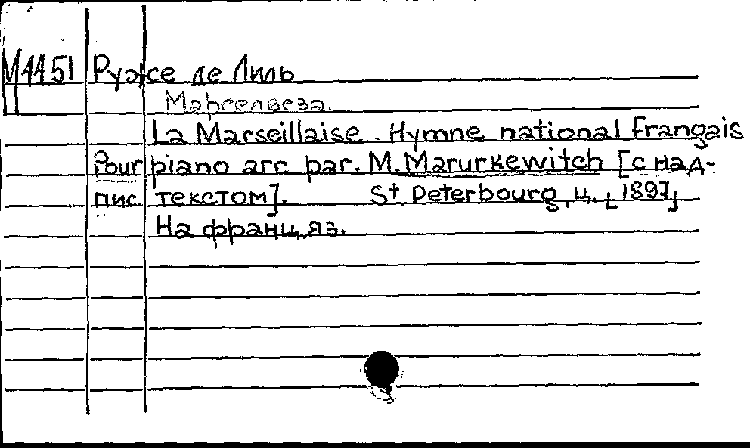 М1151 Руже де Лиль
Марсельеза.
La Marseillaise. Hymne national français
pour piano arr. par. M. Marurkewitch [с над-
пис. текстом]. St Peterbourg, ц. [1897]
На франц. яз.